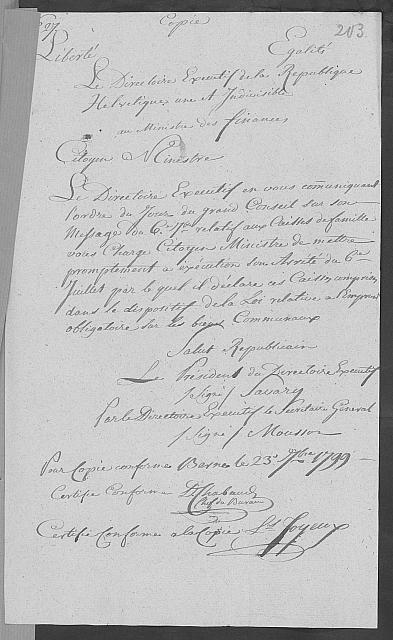 Copie
203
Liberté Egalité
Le Directoire Executif de la Republique
Helvetique une et Indivisible
au Ministre des finances
Citoyen Ministre
Le Directoire Executif en vous comuniquant
l'ordre du Jour du grand Conseil sur son
Message du 6. relatif aux Caisses de famille
vous Charge Citoyen Ministre de mettre
promptement a exécution son Arreté du 6me
Juillet par le quel il déclare ces Caisses comprises
dans le dispositif de la Loi relative a l'Emprunt
obligatoire sur les biens Communaux
Salut Republicain
Le Président du Directoire Executif
/signé/ Savary
Par le Directoire Executif le Secrétaire General
/signé/ Mousson
Pour Copie conforme Berne le 23e 7bre 1799
Certifié Conforme Chabaud
Chef du Bureau
Certifié Conforme a la Copie Ls Joyeux